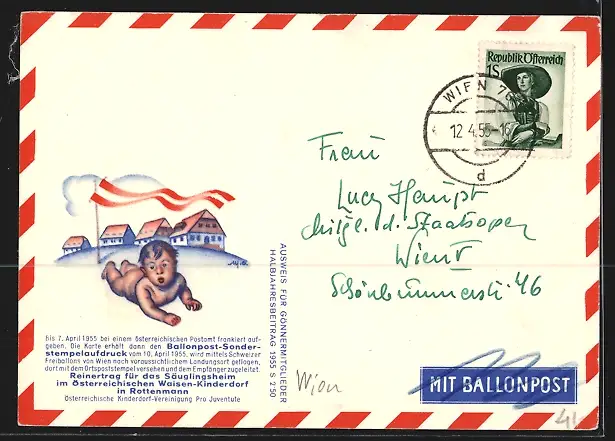 Republik Österreich
1 S
WIEN 76
12.4.55-16
d
Frau
Lucy Haupt
Mitgl. d. Staatsoper
Wien
Schönbrunnerstr. 46
bis 7. April 1955 bei einem österreichischen Postamt frankiert auf-
geben. Die Karte erhält dann den Ballonpost-Sonder-
stempelaufdruck vom 10. April 1955, wird mittels Schweizer
Freiballons von Wien nach voraussichtlichem Landungsort geflogen,
dort mit dem Ortspoststempel versehen und dem Empfänger zugeleitet.
Reinertrag für das Säuglingsheim
im Österreichischen Waisen-Kinderdorf
in Rottenmann
Österreichische Kinderdorf-Vereinigung Pro Juventute
AUSWEIS FÜR GÖNNERMITGLIEDER
HALBJAHRESBEITRAG 1955 S 2·50
Wien
MIT BALLONPOST
41